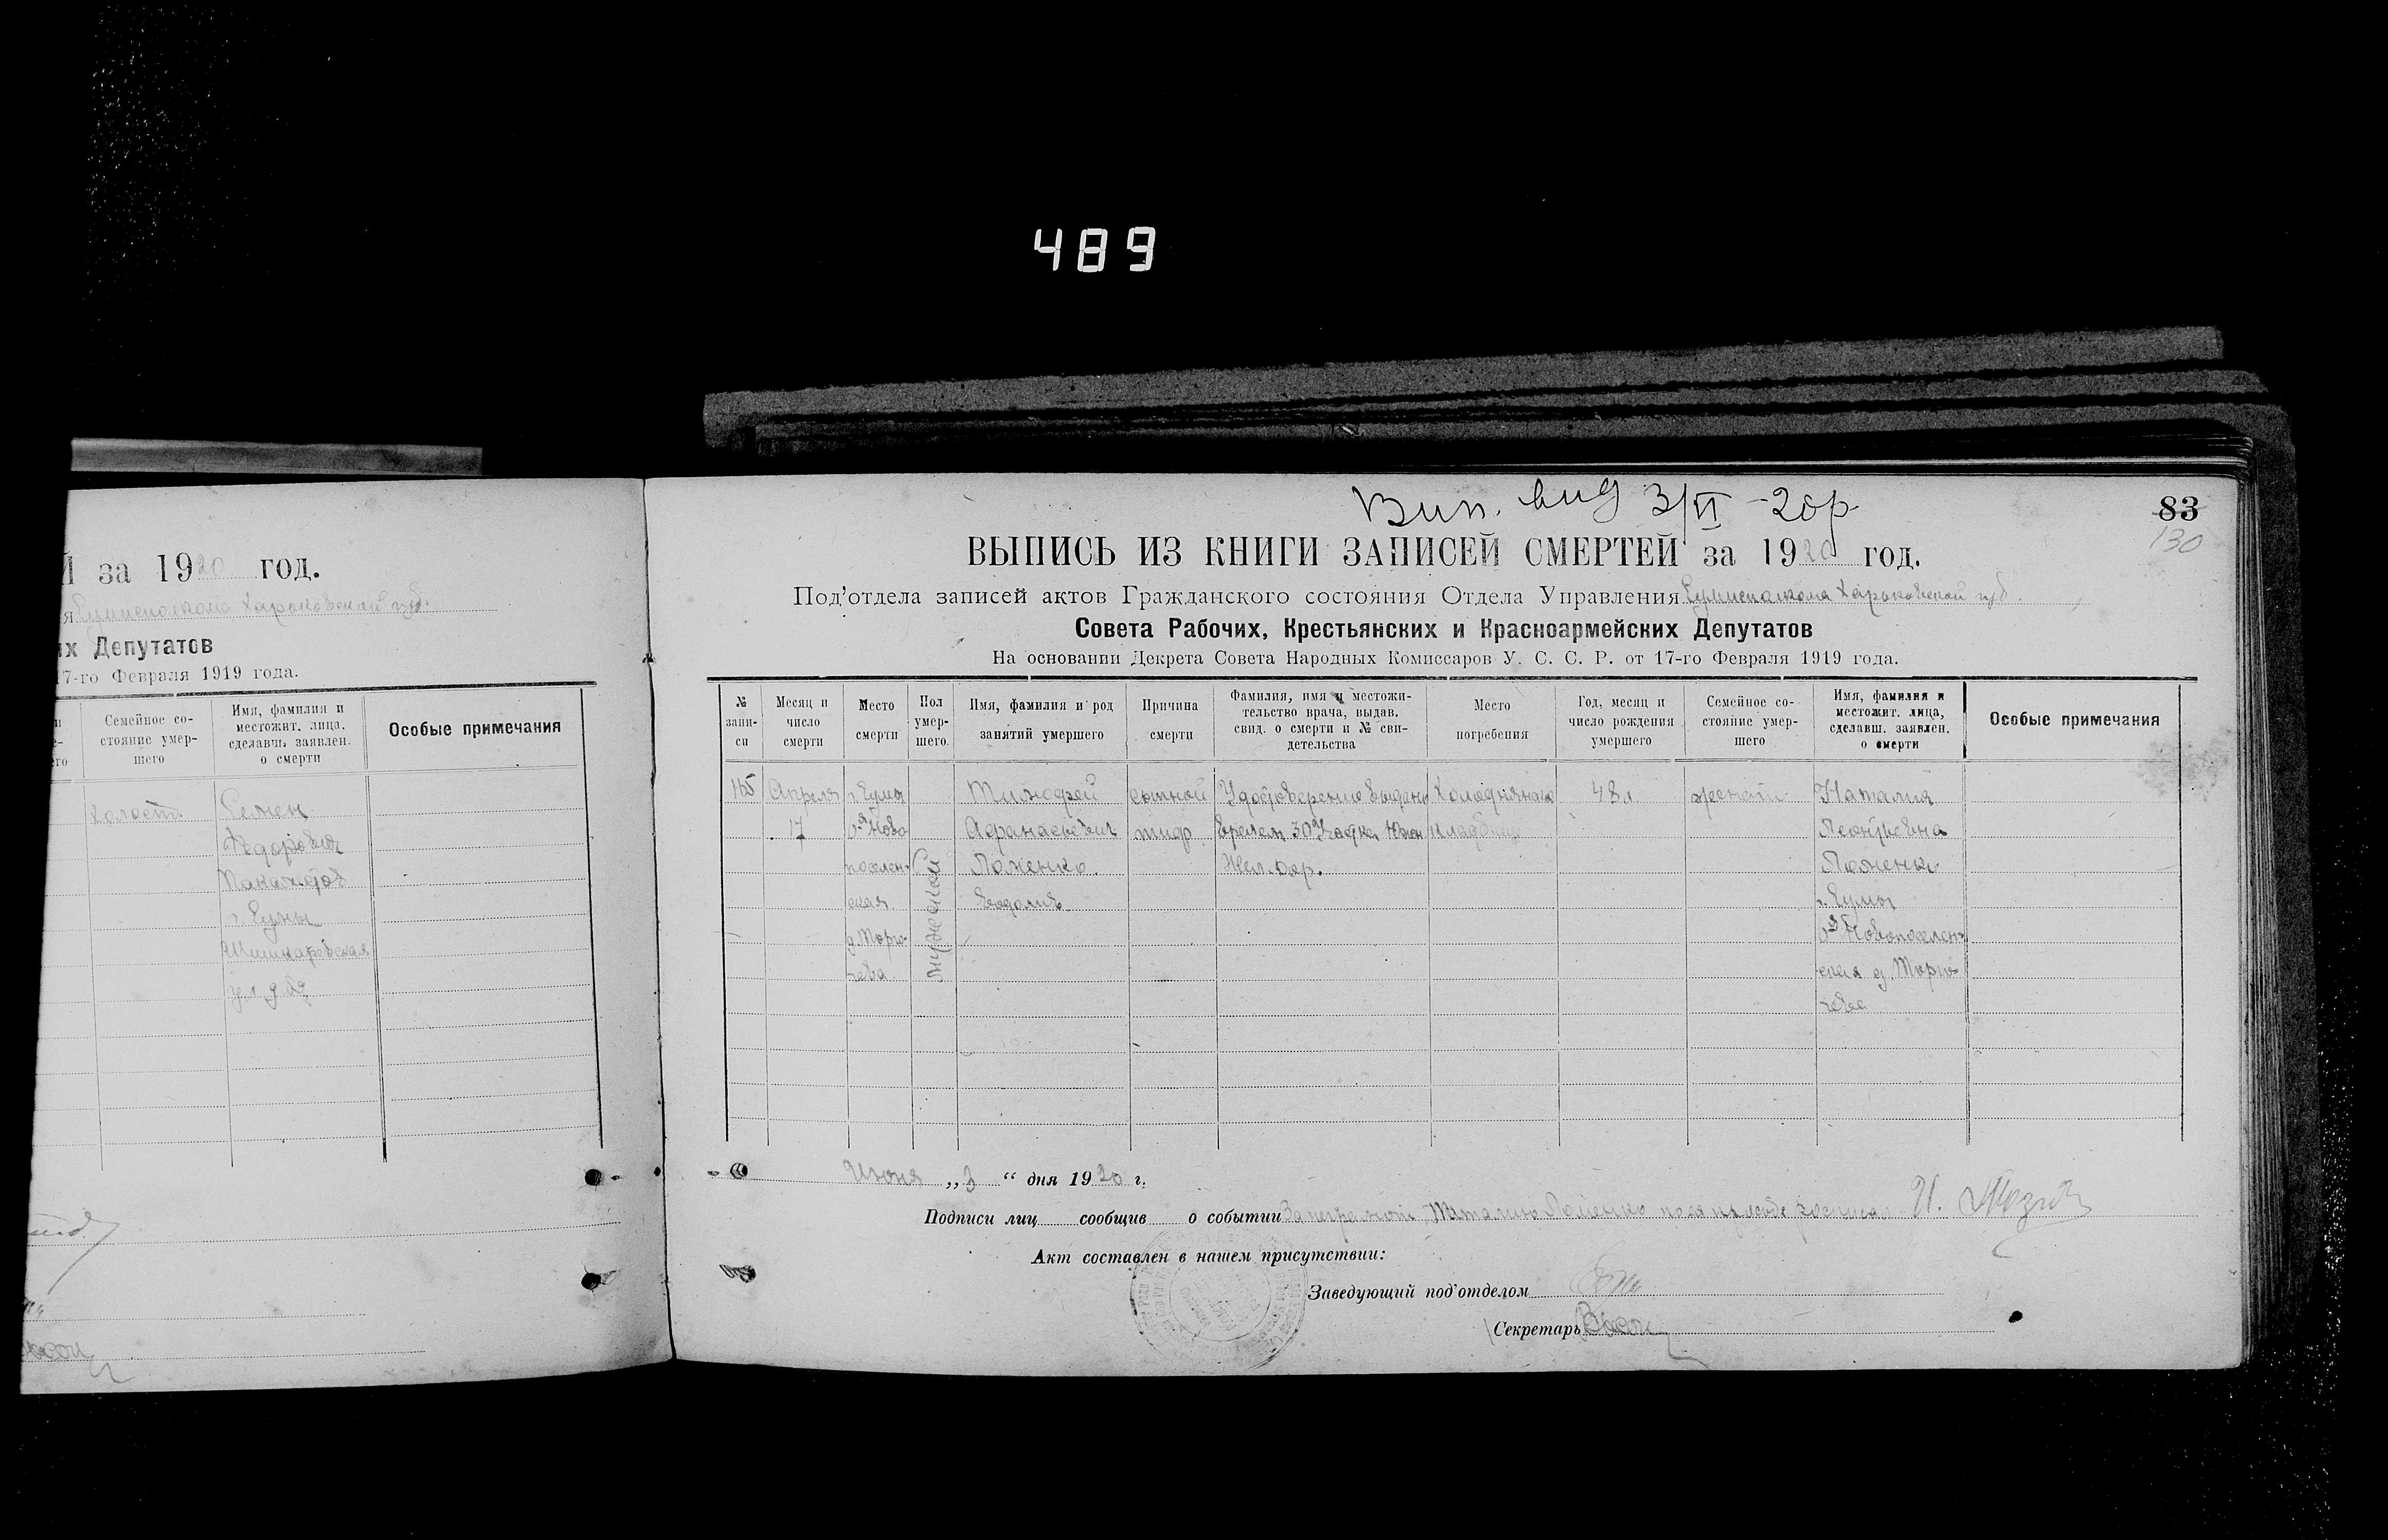 489
Й за 1920 год.
я Сумисполкома Харьковской губ.
их Депутатов
17-го Февраля 1919 года.
Семейное со-
стояние умер-
шего
Имя, фамилия и
местожит. лица,
сделавш. заявлен.
о смерти
Особые примечания
холост
Семен
Федорович
г. Сумы
Вип. вид 3/VI -20р
83
130
ВЫПИСЬ ИЗ КНИГИ ЗАПИСЕЙ СМЕРТЕЙ за 1920 год.
Под'отдела записей актов Гражданского состояния Отдела Управления Сумисполкома Харьковской губ.
Совета Рабочих, Крестьянских и Красноармейских Депутатов
На основании Декрета Совета Народных Комиссаров У. С. С. Р. от 17-го Февраля 1919 года.
№
запи-
си
Месяц и
число
смерти
Место
смерти
Пол
умер-
шего.
Имя, фамилия и род
занятий умершего
Причина
смерти
Фамилия, имя и местожи-
тельство врача, выдав.
свид. о смерти и № сви-
детельства
Место
погребения
Год, месяц и
число рождения
умершего
Семейное со-
стояние умер-
шего
Имя, фамилия и
местожит. лица,
сделавш. заявлен.
о смерти
Особые примечания
165
Апреля
17
г. Сумы
Ново
поселен-
ская
д. Торго-
чева
мужской
Тимофей
Афанасьевич
Ломенко
сыпной
тиф
Удостоверение выдано
врачем 30 Уч-ка Южн
Жел. дор.
Холодняного
кладбище
48 л.
женат
Наталия
Леонтьевна
Ломенко
г. Сумы
Новопоселен-
ская д. Торго-
чева
Июня „3“ дня 1920 г.
Подписи лиц сообщив о событии За неграмотн. Наталию Ломенко
Акт составлен в нашем присутствии:
Заведующий под'отделом
Секретарь